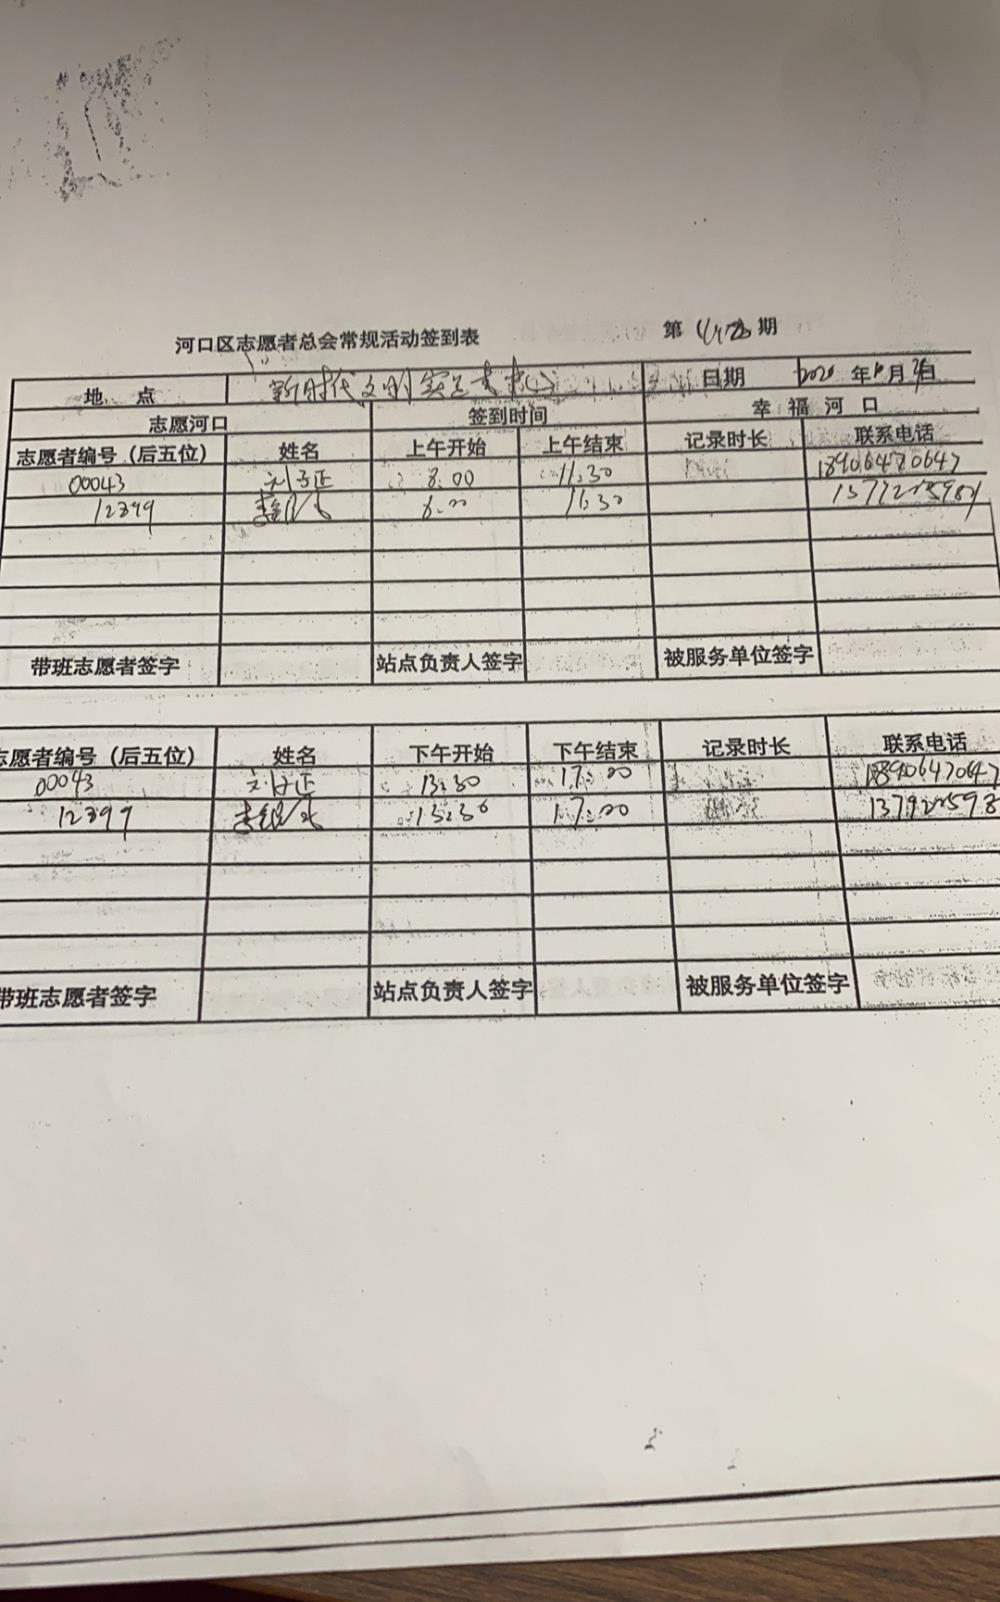 河口区志愿者总会常规活动签到表 第 期
地 点 新时代文明实践 日期 2020 年 月 日
志愿河口 签到时间 幸 福 河 口
志愿者编号（后五位） 姓名 上午开始 上午结束 记录时长 联系电话
00043 8:00 11:30 18906470647
12399 8:00 11:30
带班志愿者签字 站点负责人签字 被服务单位签字
志愿者编号（后五位） 姓名 下午开始 下午结束 记录时长 联系电话
00043 13:30 17:00 18906470647
12399 13:30 17:00
带班志愿者签字 站点负责人签字 被服务单位签字